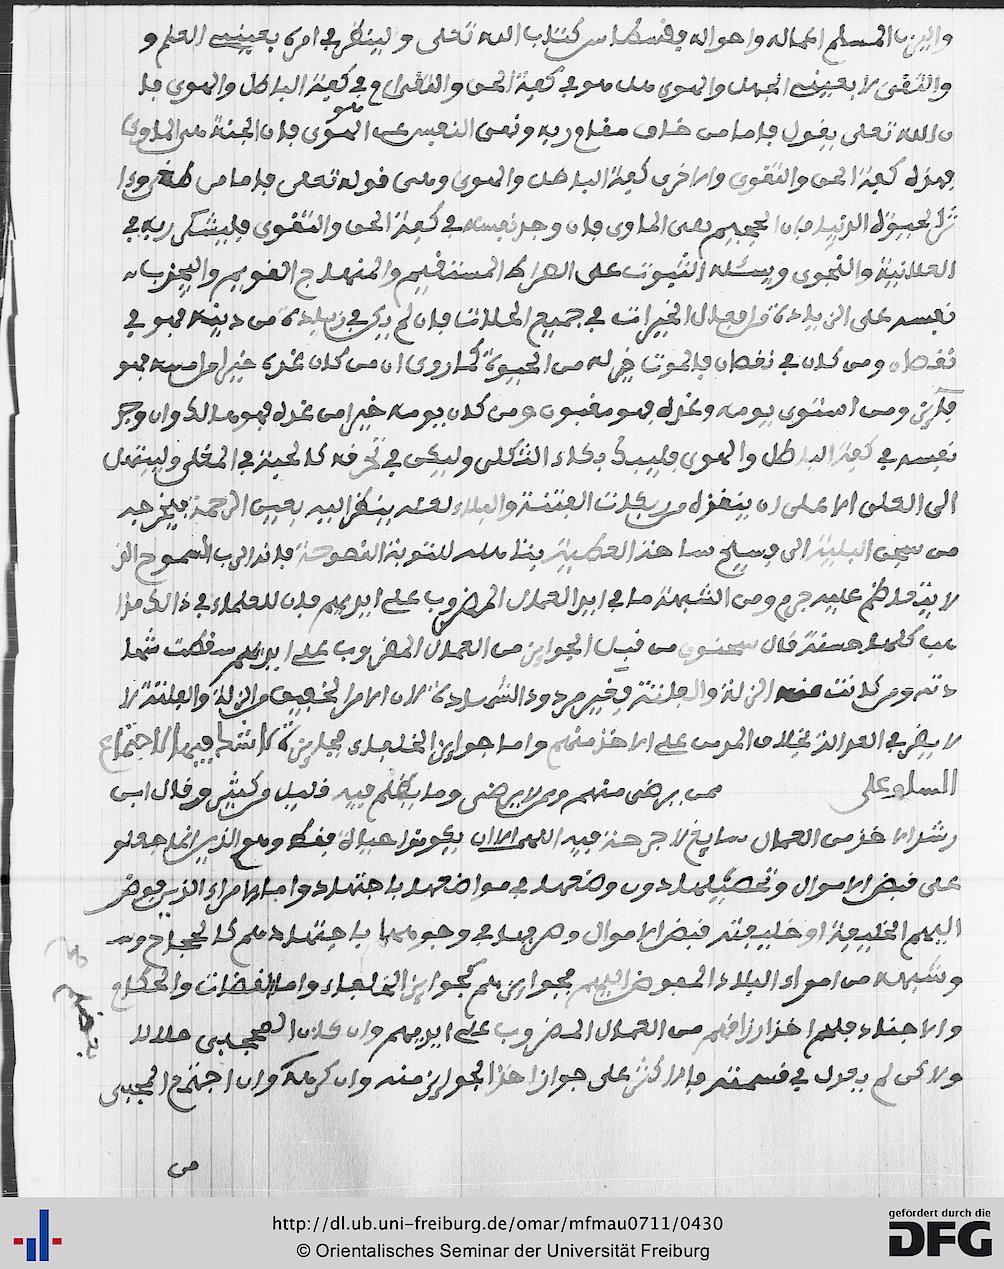 واليزن المسلم اعماله واحواله بقسطاس كتاب الله تعلى ولينظر في امره بعيني العلم و
والتقى لا بعيني الجهل والهوى هل هو في كفة الحق والتقى ام في كفة الباطل والهوى فا
ن الله تعلى يقول فاما من خاف مقام ربه ونهى النفس عن الهوى فان الجنة هي الماوى
فهذه كفة الحق والتقوى والاخرى كفة الباطل والهوى وهي قوله تعلى فاما من طغى وءا
ثر الحيوة الدنيا فان الجحيم هي الماوى فان وجد نفسه في كفة الحق والتقوى فليشكر ربه في
العلانية والنجوى ويسئله الثبوت على الصراط المستقيم والمنهاج القويم واليجذب
نفسه على الزيادة وافعال الخيرات في جميع الحالات فان لم يكن في زيادة من دينه فهو في
نقصان ومن كان في نقصان فالموت خير له من الحيوة كما روي ان من كان غده خيرا من امسه فهو
ومن استوى يومه وغده فهو مغبون ومن كان يومه خيرا من غده فهو هالك وان وجد
نفسه في كفة الباطل والهوى فليبك بكاء الثكلى وليكن في كالحبة في المقلى وليبتهل
الى العلي الاعلى ان ينقذه من الفتنة والبلاء لعله ينظر اليه بعين الرحمة فيخرجه
من سجن البلية الى فسيح ساحة العطية للتوبة النصوحة فانه الرب السموح الذي
لا يتعاظم عليه جرم ومن الشبهة ما في ايد العمال المضروب على ايديهم فان للعلماء في ذالك مذا
هب كلها حسنة قال سحنون من قبل الجوايز من العمال المضروب على ايديهم سقطت شها
دته ومن كانت منه الزلة والفلتة فغير مردود الشهادة لان الامر الخفيف والزلة والفلتة لا
لا يضر في العدالة بخلاف المدمن على الاخذ منهم واما جوايز الخلفاء فجايزة لا شك فيها لاجتماع
المسلمو على ممن يرضى منهم وممن لا يرضى وما يظلم فيه قليل وكثير وقال ابن
رشد الاخذ من العمال سايغ لا جرحة فيه اللهم الا ان يكونوا جباة فقط وهم الذين انما جعلو
على قبض الاموال وتحصيلها دون وضعها في مواضعها باجتهاد واما الامراء الذين فوض
اليهم الخليفة او خليفته قبض الاموال وصرفها في وجوهها باجتهادهم كالحجاج و
وشبهه من امراء البلاد المفوض اليهم فجوايزهم كجوايز الخلفاء واما القضات والحكام
والاجناد فلهم اخذ ارزاقهم من العمال المضروب على ايديهم وان كان المجبى حلالا
ولاكن لم يعدل في قسمته فالاكثر على جواز اخذ الجوايز منه وان كرهه وان اجتمع المجبى
من
http://dl.ub.uni-freiburg.de/omar/mfmau0711/0430
© Orientalisches Seminar der Universität Freiburg
gefördert durch die
DFG